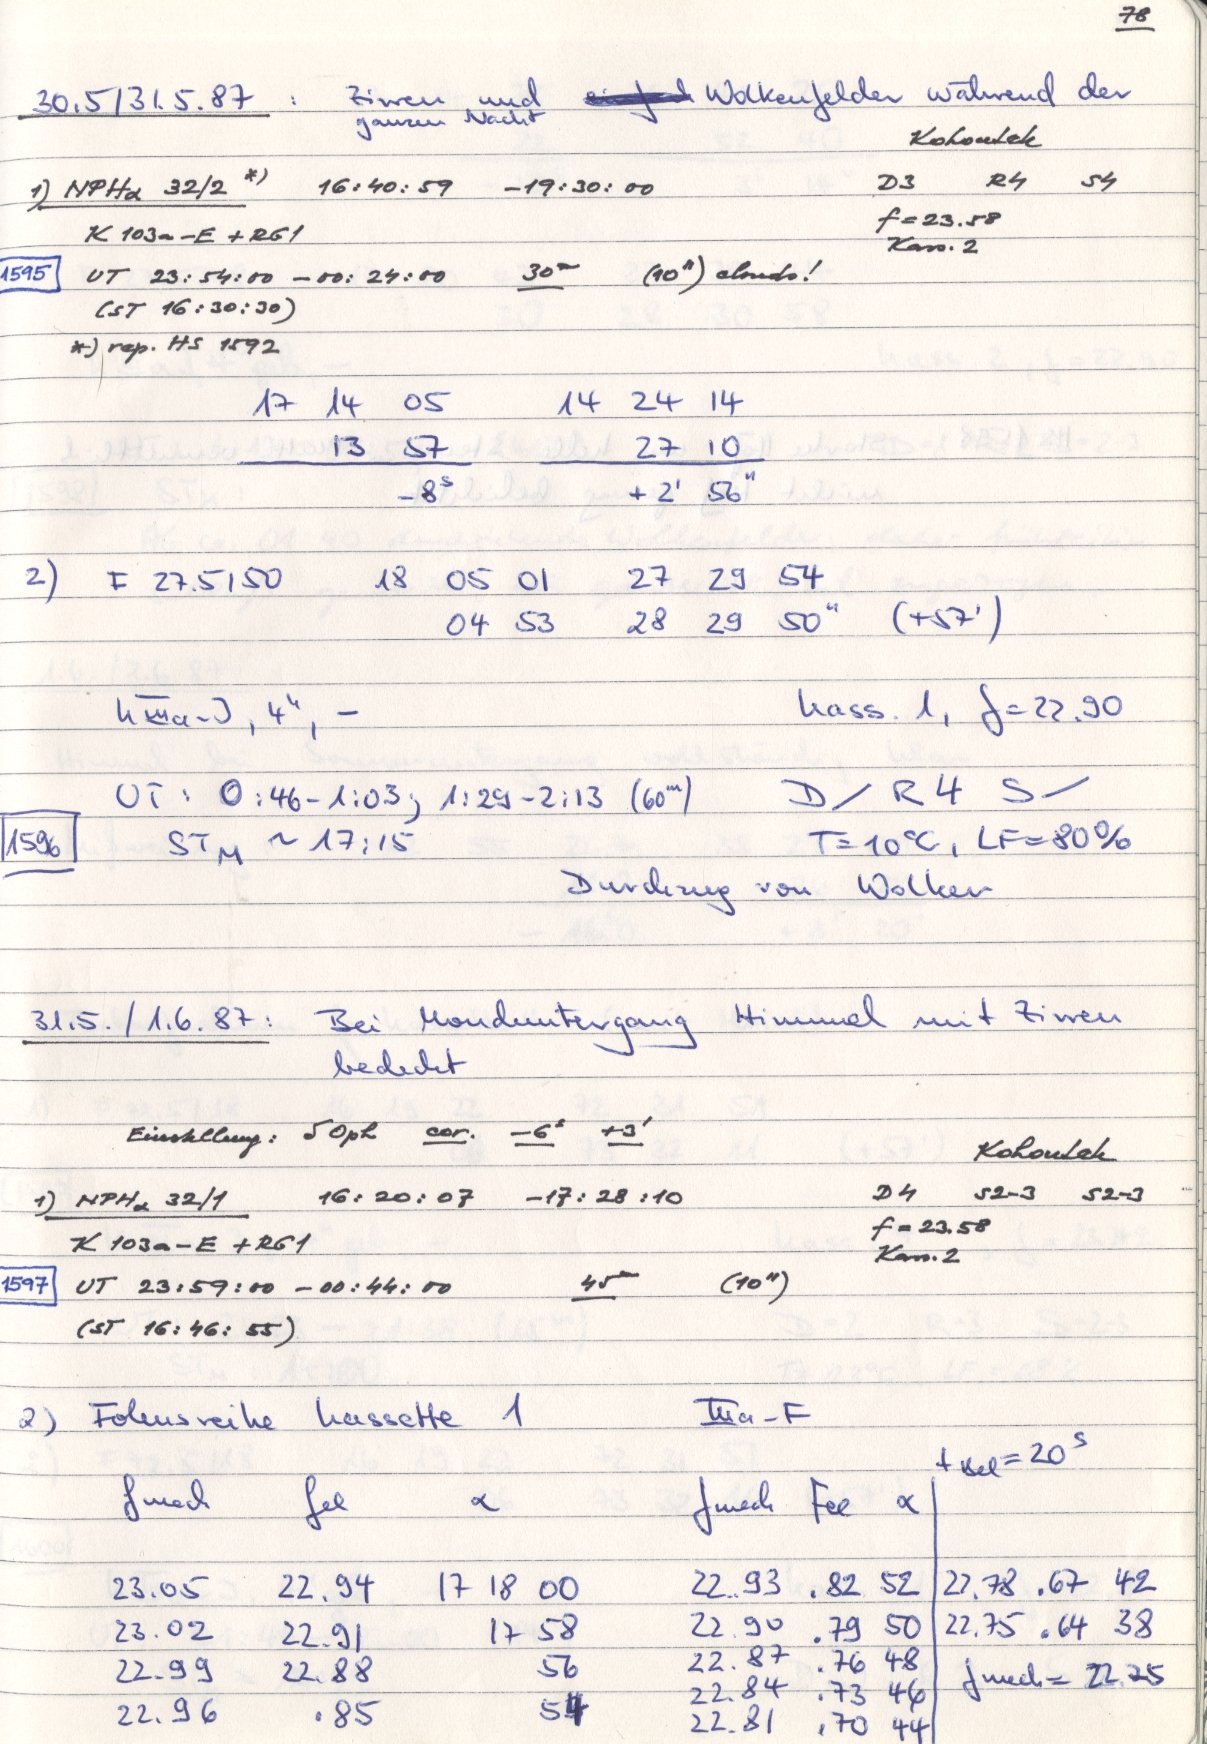 78
30.5/31.5.87 : Zirren und Wolkenfelder während der
ganzen Nacht
Kohoutek
1) NPHα 32/2 *) 16:40:59 -19:30:00 D3 R4 S4
K 103a-E + RG1 f=23.58
Kass. 2
1595 UT 23:54:00 - 00:24:00 30m (10") clouds!
(ST 16:30:30)
*) rep. HS 1592
17 14 05 14 24 14
13 57 27 10
-8s +2' 56"
2) F 27.5150 18 05 01 27 29 54
04 53 28 29 50" (+57')
h IIIa-J, 4", - Kass. 1, f=22.90
UT: 0:46-1:03; 1:29-2:13 (60m) D/ R4 S/
1596 STM ~ 17:15 T=10°C, LF=80%
Durchzug von Wolken
31.5./1.6.87: Bei Monduntergang Himmel mit Zirren
bedeckt
Einstellung: 5 Oph cor. -6s +3'
Kohoutek
1) NPHα 32/1 16:20:07 -17:28:10 D4 S2-3 S2-3
K 103a-E + RG1 f=23.58
Kass. 2
1597 UT 23:59:00 - 00:44:00 45m (10")
(ST 16:46:55)
2) Fokusreihe Kassette 1 IIIa-F
t Bel = 20s
fmech fel α fmech Fel α
23.05 22.94 17 18 00 22.93 .82 52 22.78 .67 42
23.02 22.91 17 58 22.90 .79 50 22.75 .64 38
22.99 22.88 56 22.87 .76 48 fmech = 22.25
22.96 .85 54 22.84 .73 46
22.81 .70 44